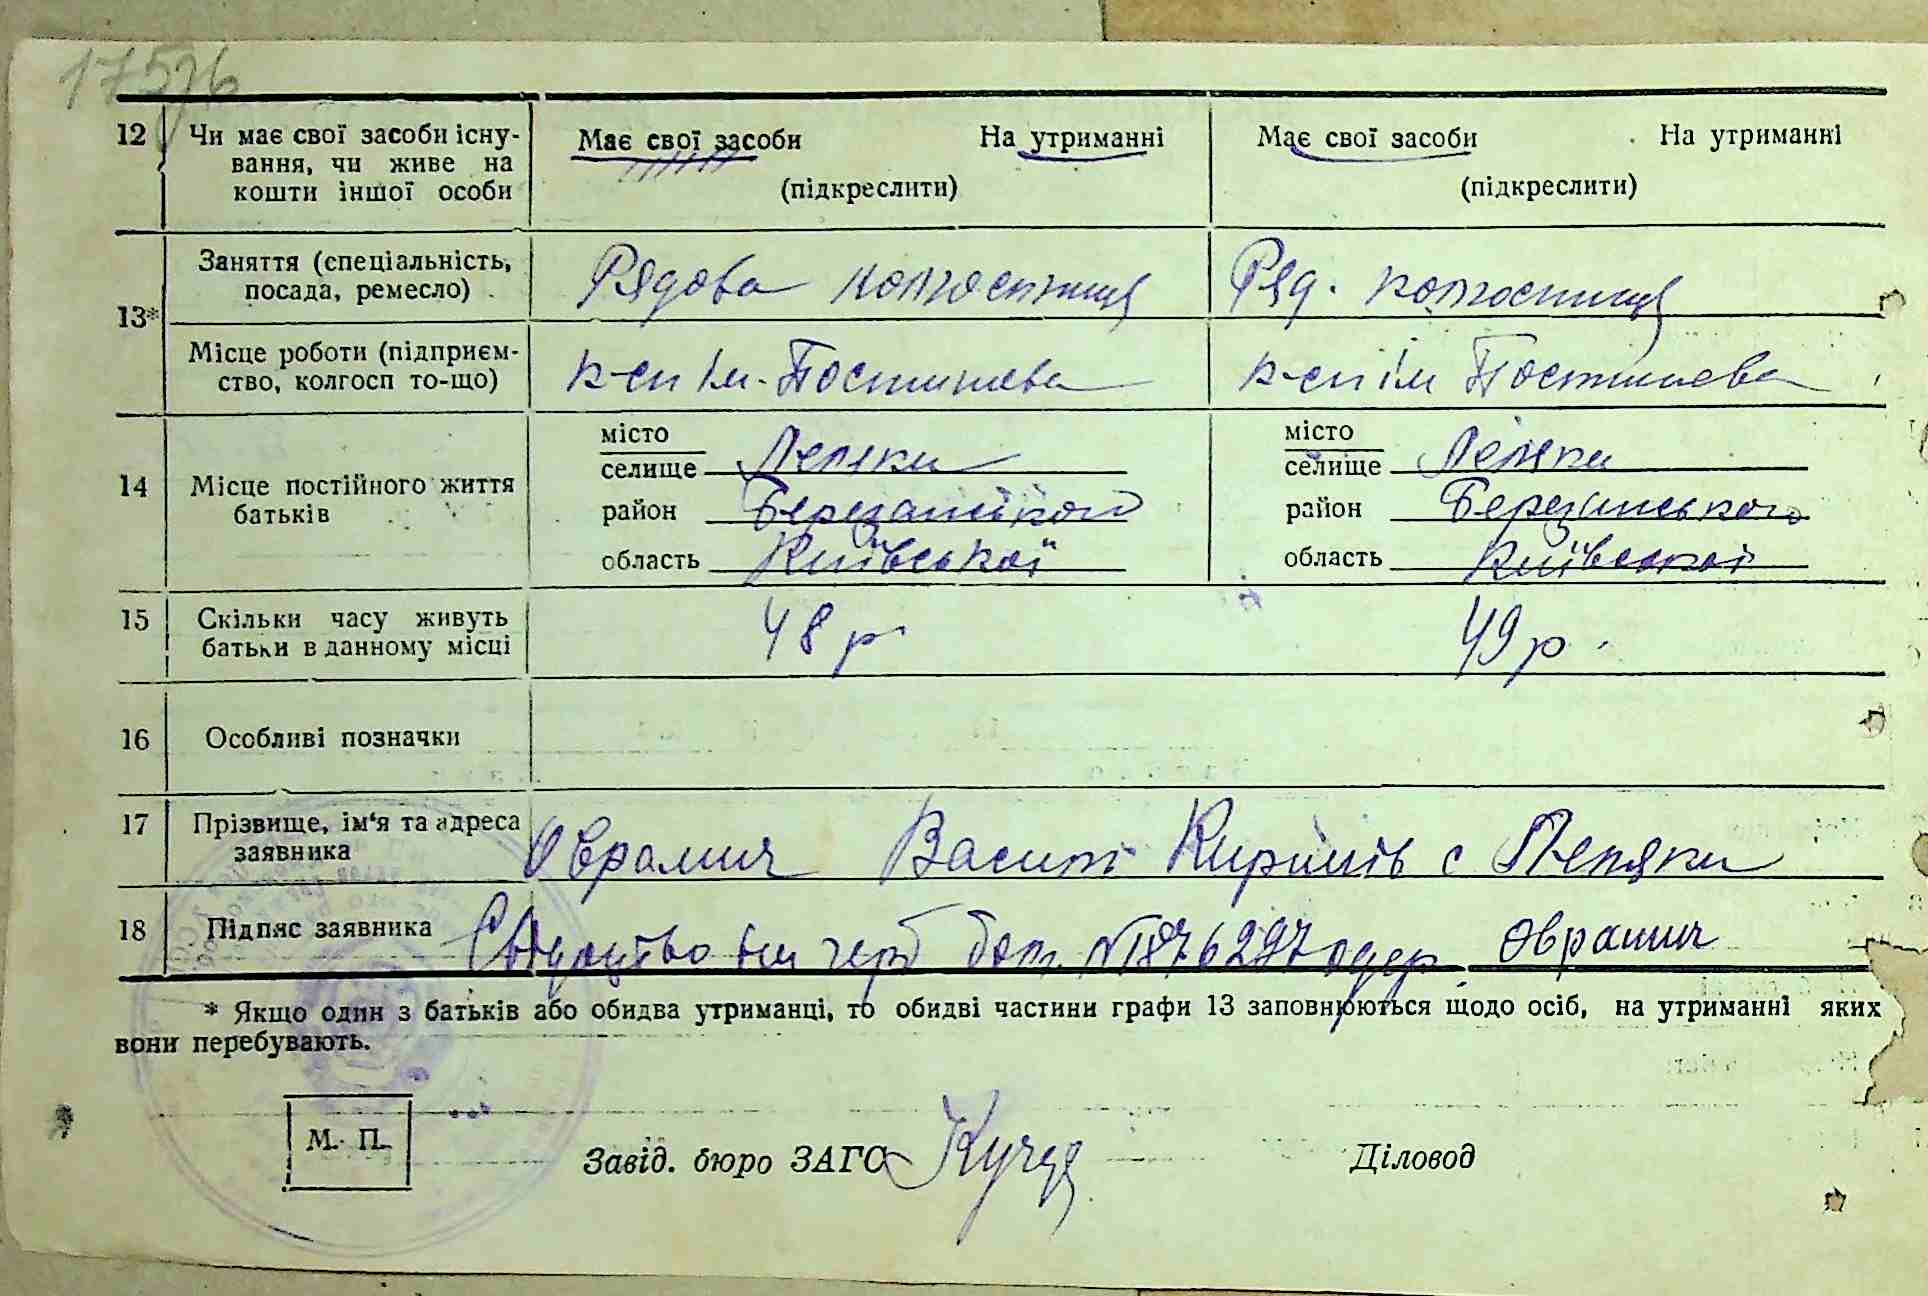 17576
12 Чи має свої засоби існу- Має свої засоби На утриманні Має свої засоби На утриманні
вання, чи живе на
кошти іншої особи (підкреслити) (підкреслити)
Заняття (спеціальність, Рядова колгоспниця Ряд. колгоспниця
посада, ремесло)
13*
Місце роботи (підприєм- к-сп ім. Постишева к-сп ім Постишева
ство, колгосп то-що)
місто місто
селище Лепляки селище Лепляки
14 Місце постійного життя район Березанського район Березанського
батьків
область Київської область Київської
15 Скільки часу живуть 48 р 49 р.
батьки в данному місці
16 Особливі позначки
17 Прізвище, ім'я та адреса Оврамич Василь с
заявника
18 Підпис заявника Свідуцтво №876297 одер Оврамич
* Якщо один з батьків або обидва утриманці, то обидві частини графи 13 заповнюються щодо осіб, на утриманні яких
вони перебувають.
М. П.
Завід. бюро ЗАГС Діловод